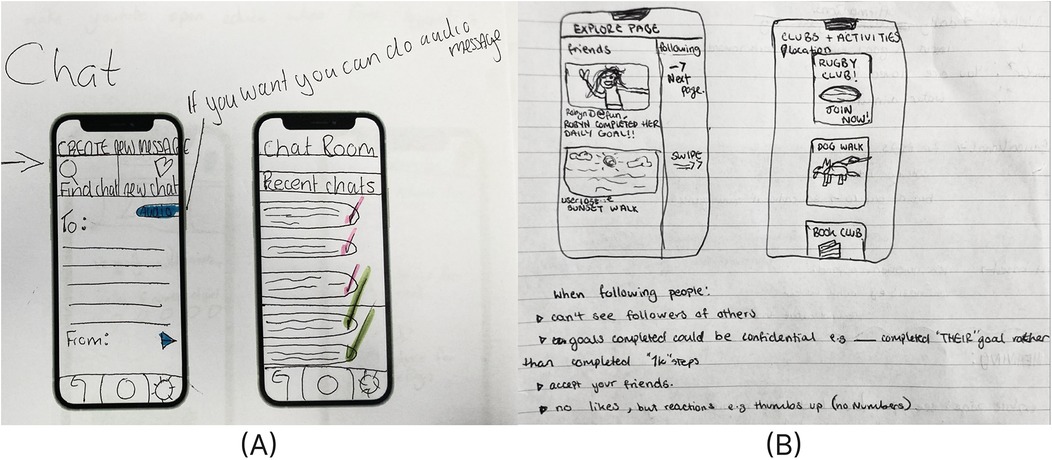 Chat
If you want you can do audio
message
CREATE new MESSAGE
Find chat new chat
AUDIO
To:
From:
Chat Room
Recent chats
(A)
EXPLORE PAGE
friends
following
→ Next
Page.
ROBYN COMPLETED HER
DAILY GOAL!!
SWIPE
SUNSET WALK
CLUBS + ACTIVITIES
location
RUGBY
CLUB!
JOIN
NOW!
DOG WALK
BOOK CLUB
when following people:
▷ can't see followers of others
▷ goals completed could be confidential e.g ___ completed "THEIR" goal rather
than completed "1k" steps
▷ accept your friends.
▷ no likes, but reactions e.g thumbs up (no numbers)
(B)